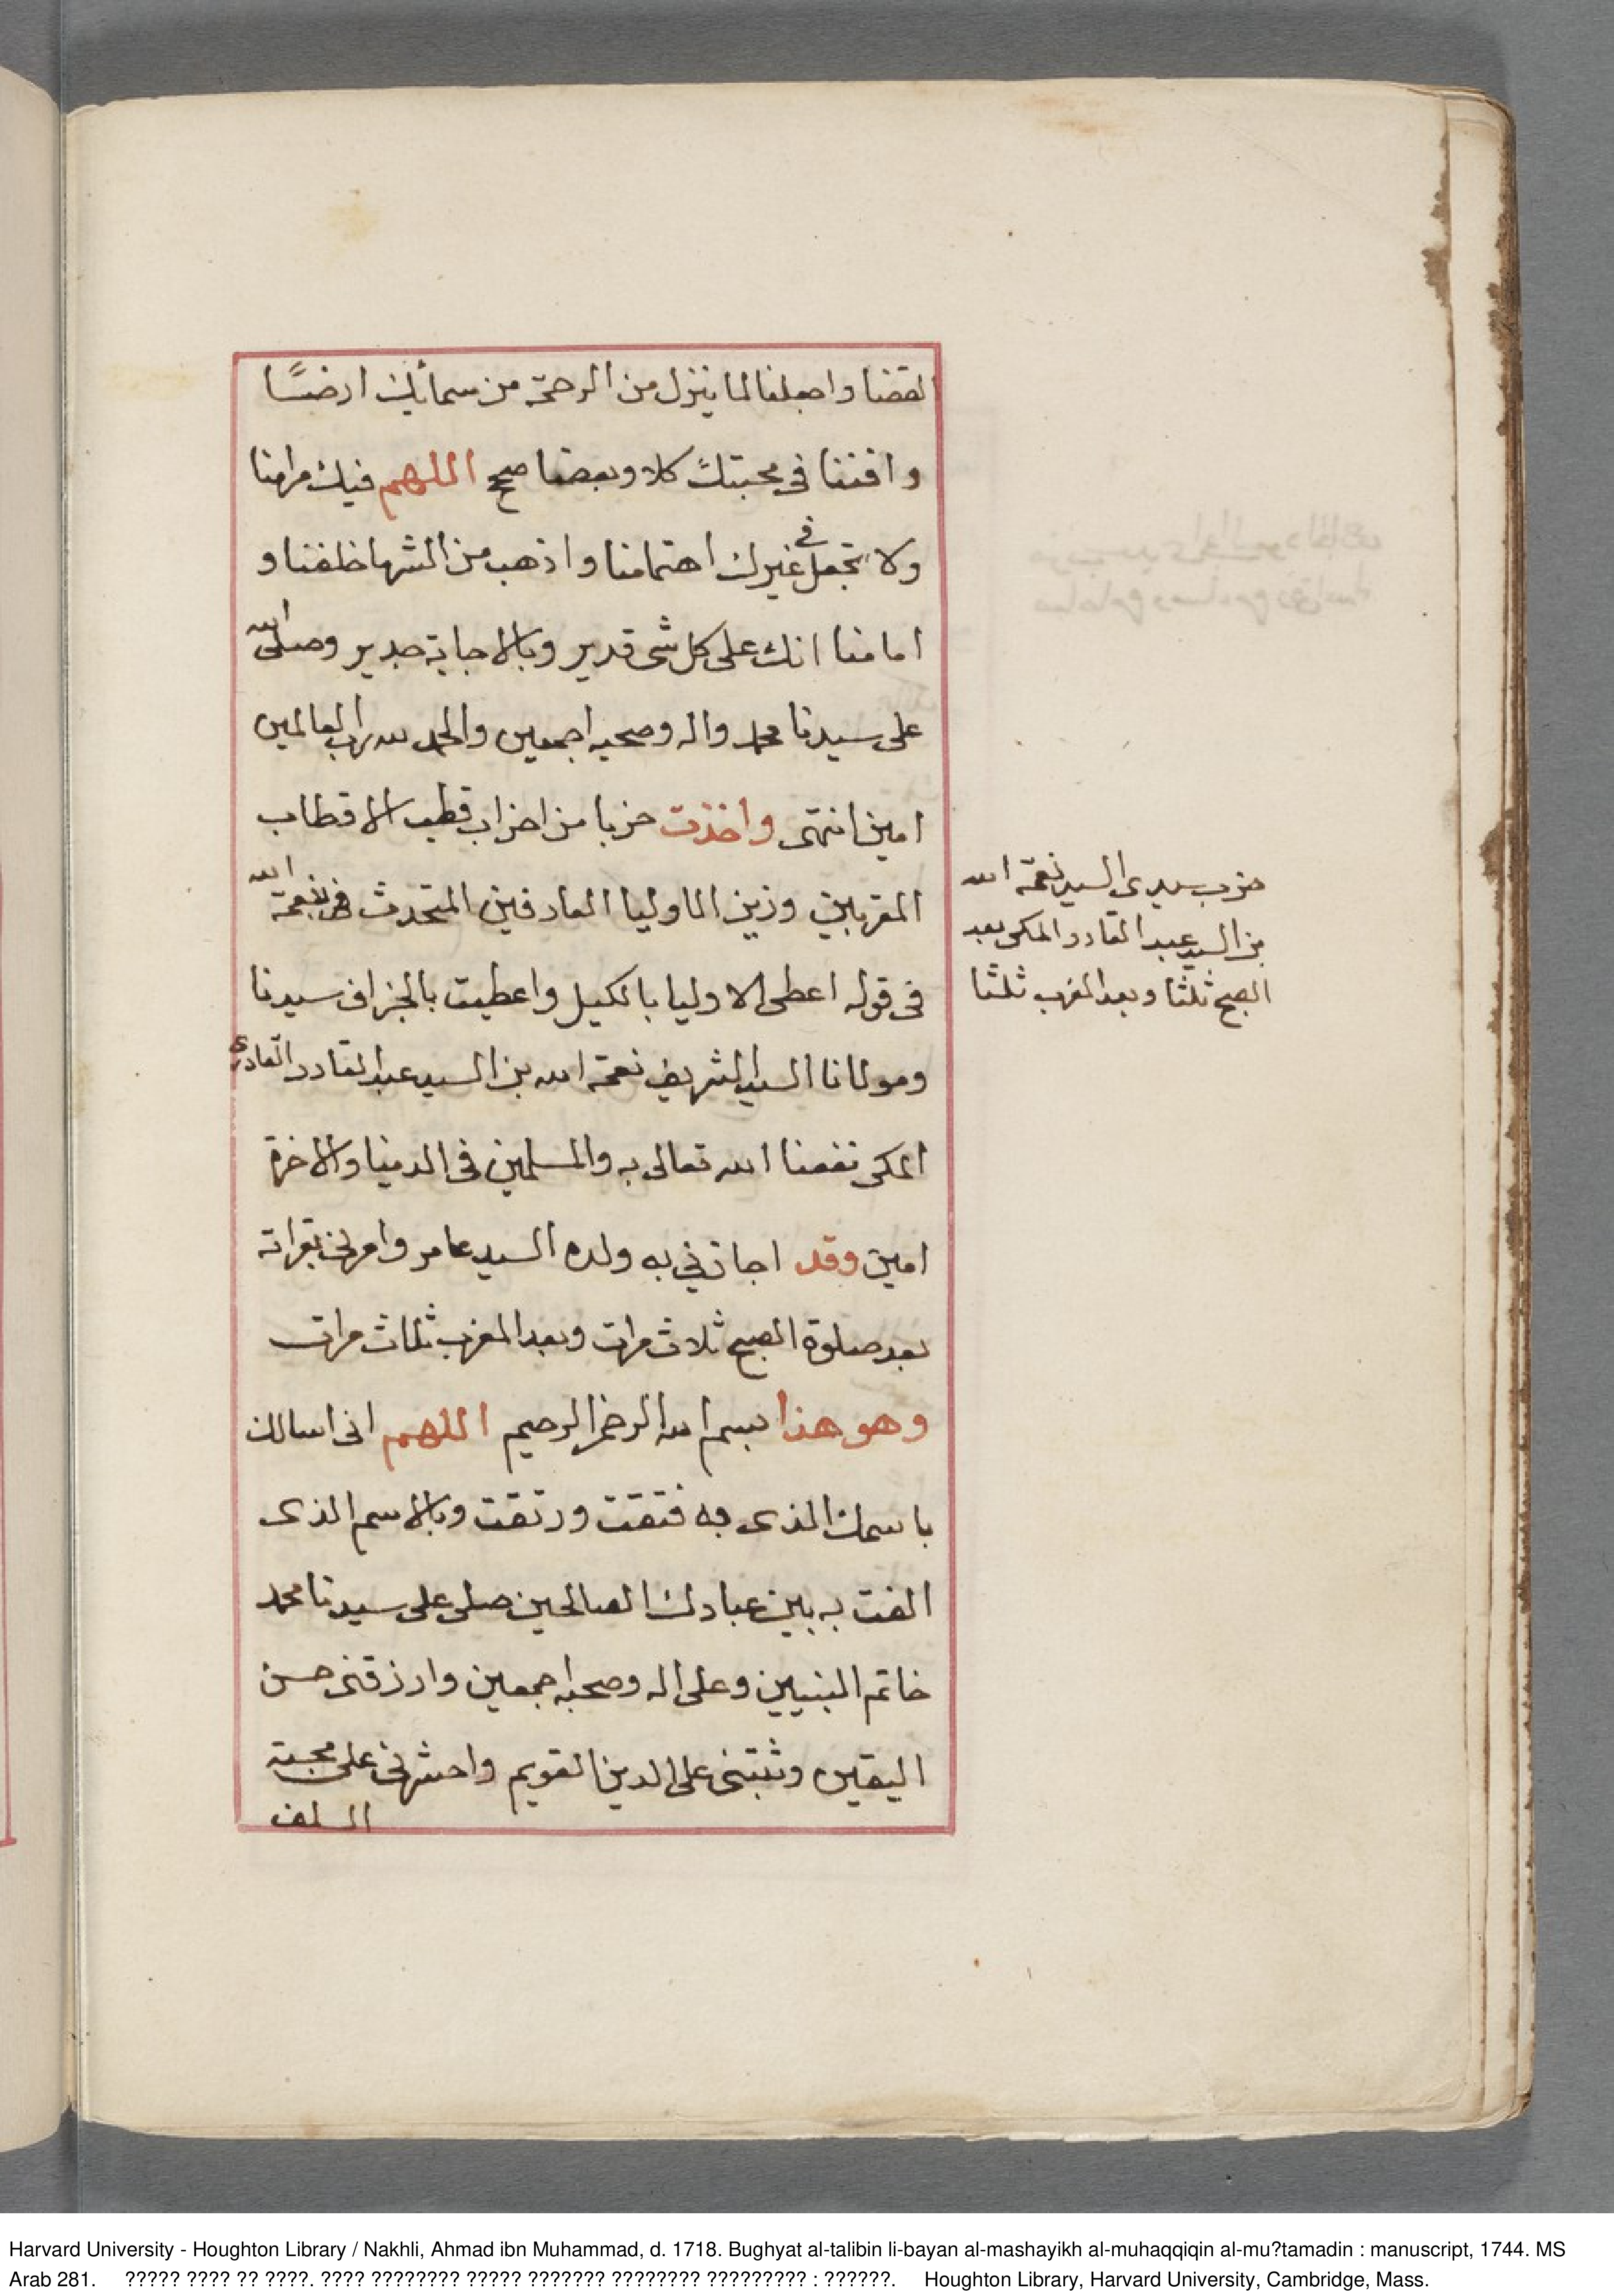 لقضنا واجعلنا لما ينزل من الرحمة من سمائك ارضًا
وافننا في محبتك كلا وبعضنا صحح اللهم فيك مرامنا
ولا تجعل في غيرك اهتمامنا واذهب من الشر ما خلفنا و
امامنا انك على كل شى قدير وبالاجابة جدير وصلى الله
على سيدنا محمد واله وصحبه اجمعين والحمد لله رب العالمين
امين انتهى واخذت حزبا من احزاب قطب الاقطاب
المقربين وزين الاوليا العارفين المتحدث بنعمة الله
فى قوله اعطى الاوليا بالكيل واعطيت بالجزاف سيدنا
ومولانا السيد الشريف نعمة الله بن السيد عبد القادر القادرى
المكى نفعنا الله تعالى به والمسلمين فى الدنيا والاخرة
امين وقد اجازني به ولده السيد عامر وامرنى بقراته
بعد صلوة الصبح ثلاث مرات وبعد المغرب ثلاث مرات
وهو هذا بسم الله الرحمن الرحيم اللهم انى اسالك
باسمك الذى به فتقت ورتقت وبالاسم الذى
الفت به بين عبادك الصالحين صلى على سيدنا محمد
خاتم النبيين وعلى اله وصحبه اجمعين وارزقنى حسن
اليقين وثبتنى على الدين القويم واحشرنى على محبته
السلف
حزب سيدى السيد نعمة الله
بن السيد عبد القادر المكى بعد
الصبح ثلثا وبعد المغرب ثلثا
Harvard University - Houghton Library / Nakhli, Ahmad ibn Muhammad, d. 1718. Bughyat al-talibin li-bayan al-mashayikh al-muhaqqiqin al-mu?tamadin : manuscript, 1744. MS
Arab 281. ????? ???? ?? ????. ???? ???????? ????? ??????? ???????? ????????? : ??????. Houghton Library, Harvard University, Cambridge, Mass.